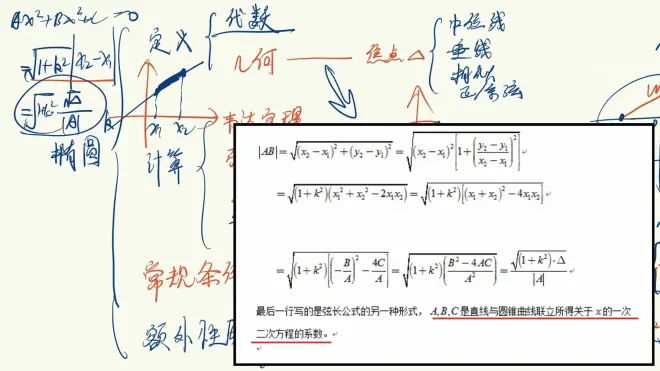 Ax²+Bx²+C=0
=√(1+k²)|x₂-x₁|
=√(1+k²) √Δ/|A|
椭圆
定义
代数
几何
焦点△
中位线
垂线
相似
正余弦
x₁ x₂
韦达定理
计算
常规条件
额外性
|AB|=√((x₂-x₁)²+(y₂-y₁)²)=√((x₂-x₁)²[1+((y₂-y₁)/(x₂-x₁))²])
=√((1+k²)(x₁²+x₂²-2x₁x₂))=√((1+k²)[(x₁+x₂)²-4x₁x₂])
=√((1+k²)[(-B/A)²-4C/A])=√((1+k²)((B²-4AC)/A²))=√((1+k²)·Δ)/|A|
最后一行写的是弦长公式的另一种形式，A,B,C是直线与圆锥曲线联立所得关于 x 的一次
二次方程的系数。